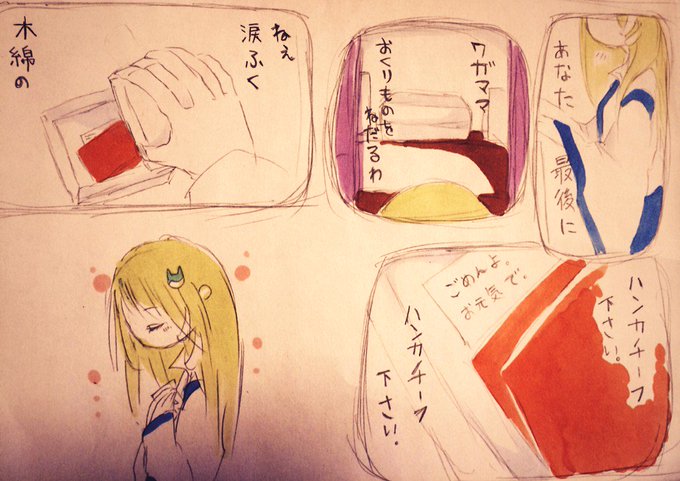 あなた
最後に
ワガママ
おくりものを
ねだるわ
ねぇ
涙ふく
木綿の
ハンカチーフ
下さい。
ごめんよ。
お元気で。
ハンカチーフ
下さい。